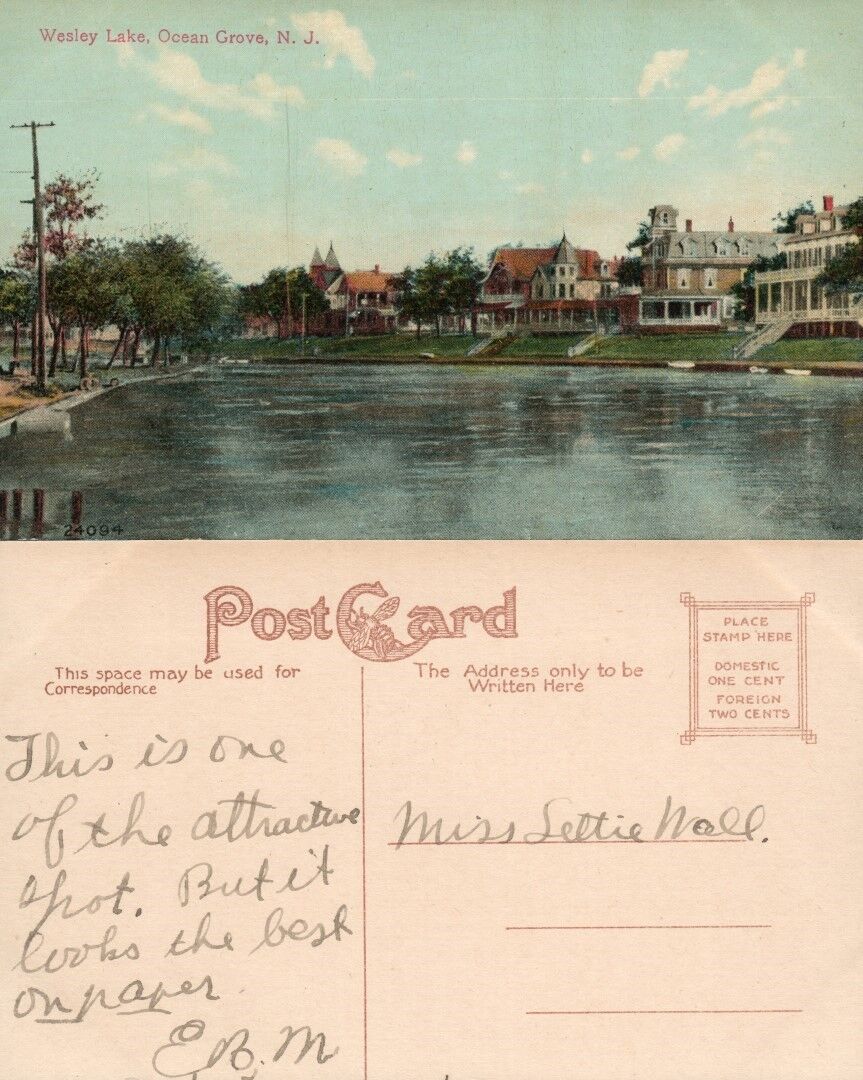 Wesley Lake, Ocean Grove, N. J.
24094
Post Card
This space may be used for
Correspondence
The Address only to be
Written Here
PLACE
STAMP HERE
DOMESTIC
ONE CENT
FOREIGN
TWO CENTS
This is one
of the attractive
spot. But it
looks the best
on paper
E.B.M
Miss Lettie Wall.